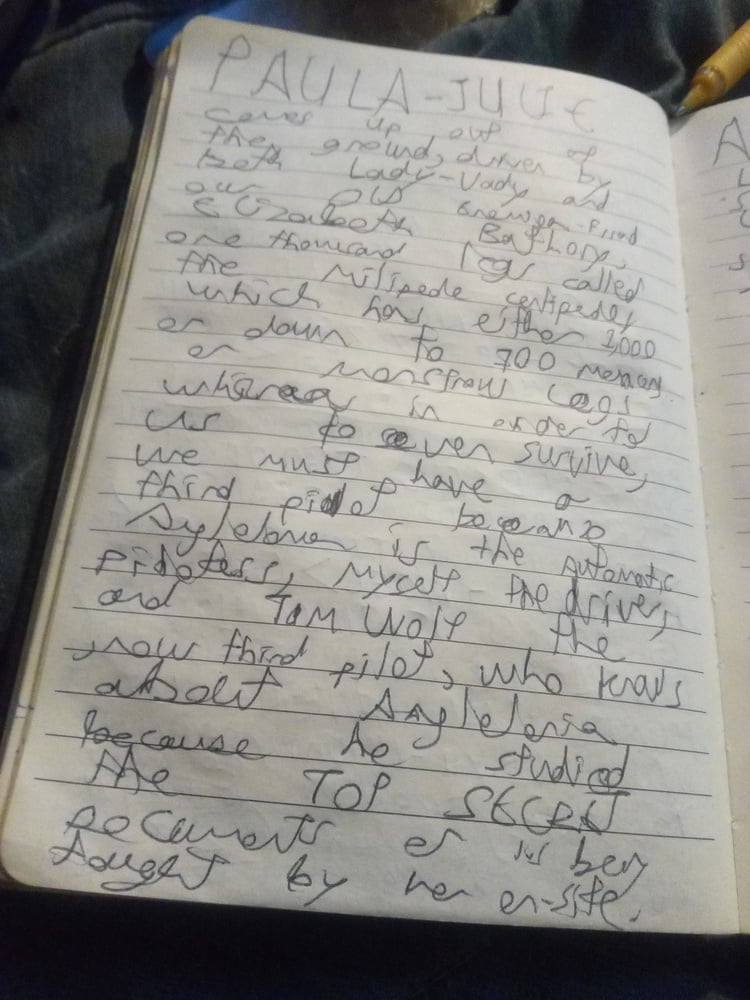 PAULA-JULIE
comes up out of
the ground, driven by
both Lady-Vady and
our old
Elizabeth Bathory,
one thousand legs called
the Milipede centipedes
which has either 3,000
or down to 700
or monstrous legs
whereas in order to
us to even survive,
we must have a
third pilot because
is the Automatic
pilotess, Myself the driver,
and Tom Wolf the
now third pilot, who knows
about Anglelenia
because he studied
the TOP SECRET
DOCUMENTS
by her on-site.
A